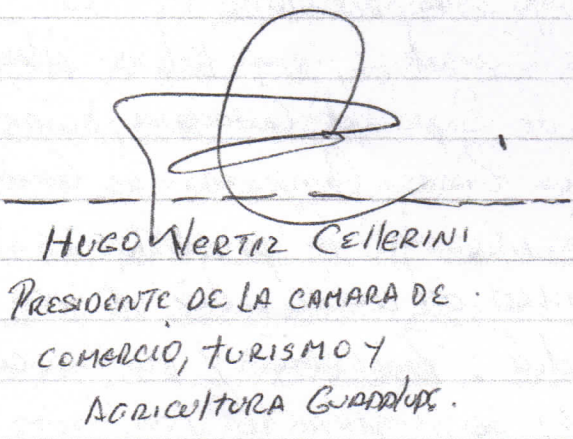 HUGO VERTIZ CELLERINI
PRESIDENTE DE LA CAMARA DE
COMERCIO, TURISMO Y
AGRICULTURA GUADALUPE.